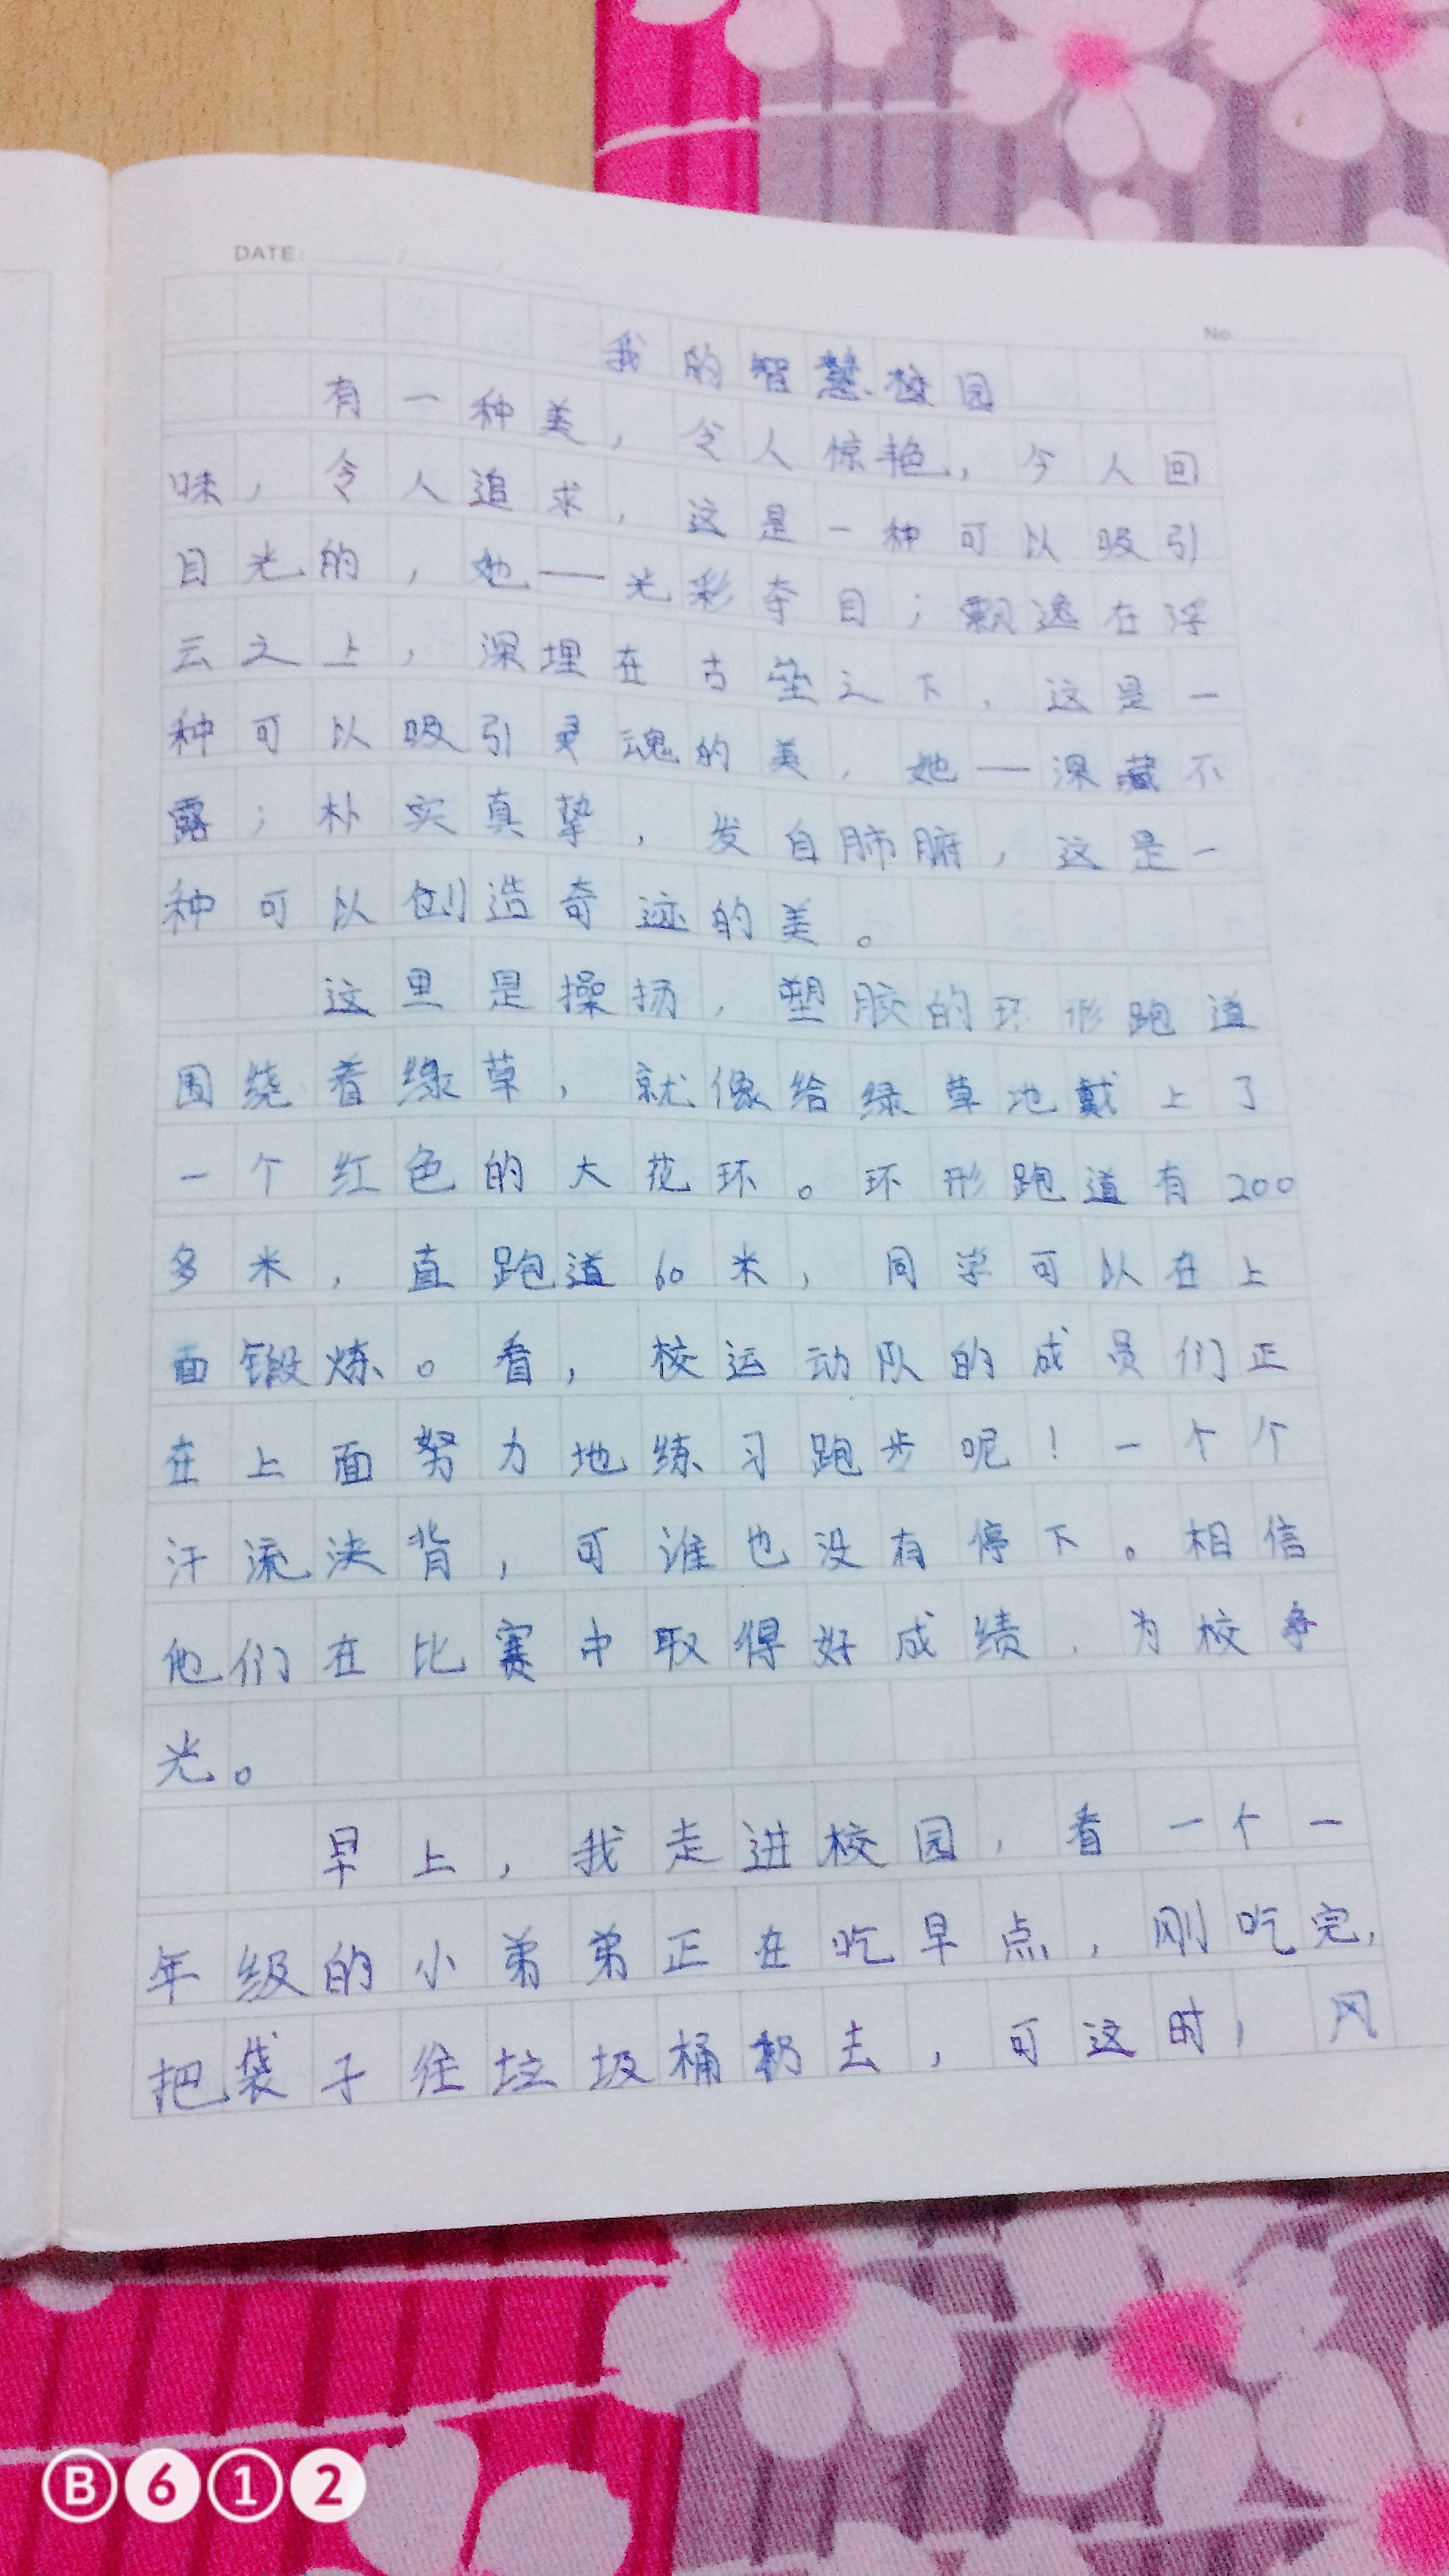 DATE: / /
No.
我的智慧校园
有一种美，令人惊艳，令人回
味，令人追求，这是一种可以吸引
目光的，她——光彩夺目；飘逸在浮
云之上，深埋在古垒之下，这是一
种可以吸引灵魂的美，她——深藏不
露；朴实真挚，发自肺腑，这是一
种可以创造奇迹的美。
这里是操场，塑胶的环形跑道
围绕着绿草，就像给绿草地戴上了
一个红色的大花环。环形跑道有200
多米，直跑道60米，同学可以在上
面锻炼。看，校运动队的成员们正
在上面努力地练习跑步呢！一个个
汗流决背，可谁也没有停下。相信
他们在比赛中取得好成绩，为校争
光。
早上，我走进校园，看一个一
年级的小弟弟正在吃早点，刚吃完，
把袋子往垃圾桶扔去，可这时，风
B612